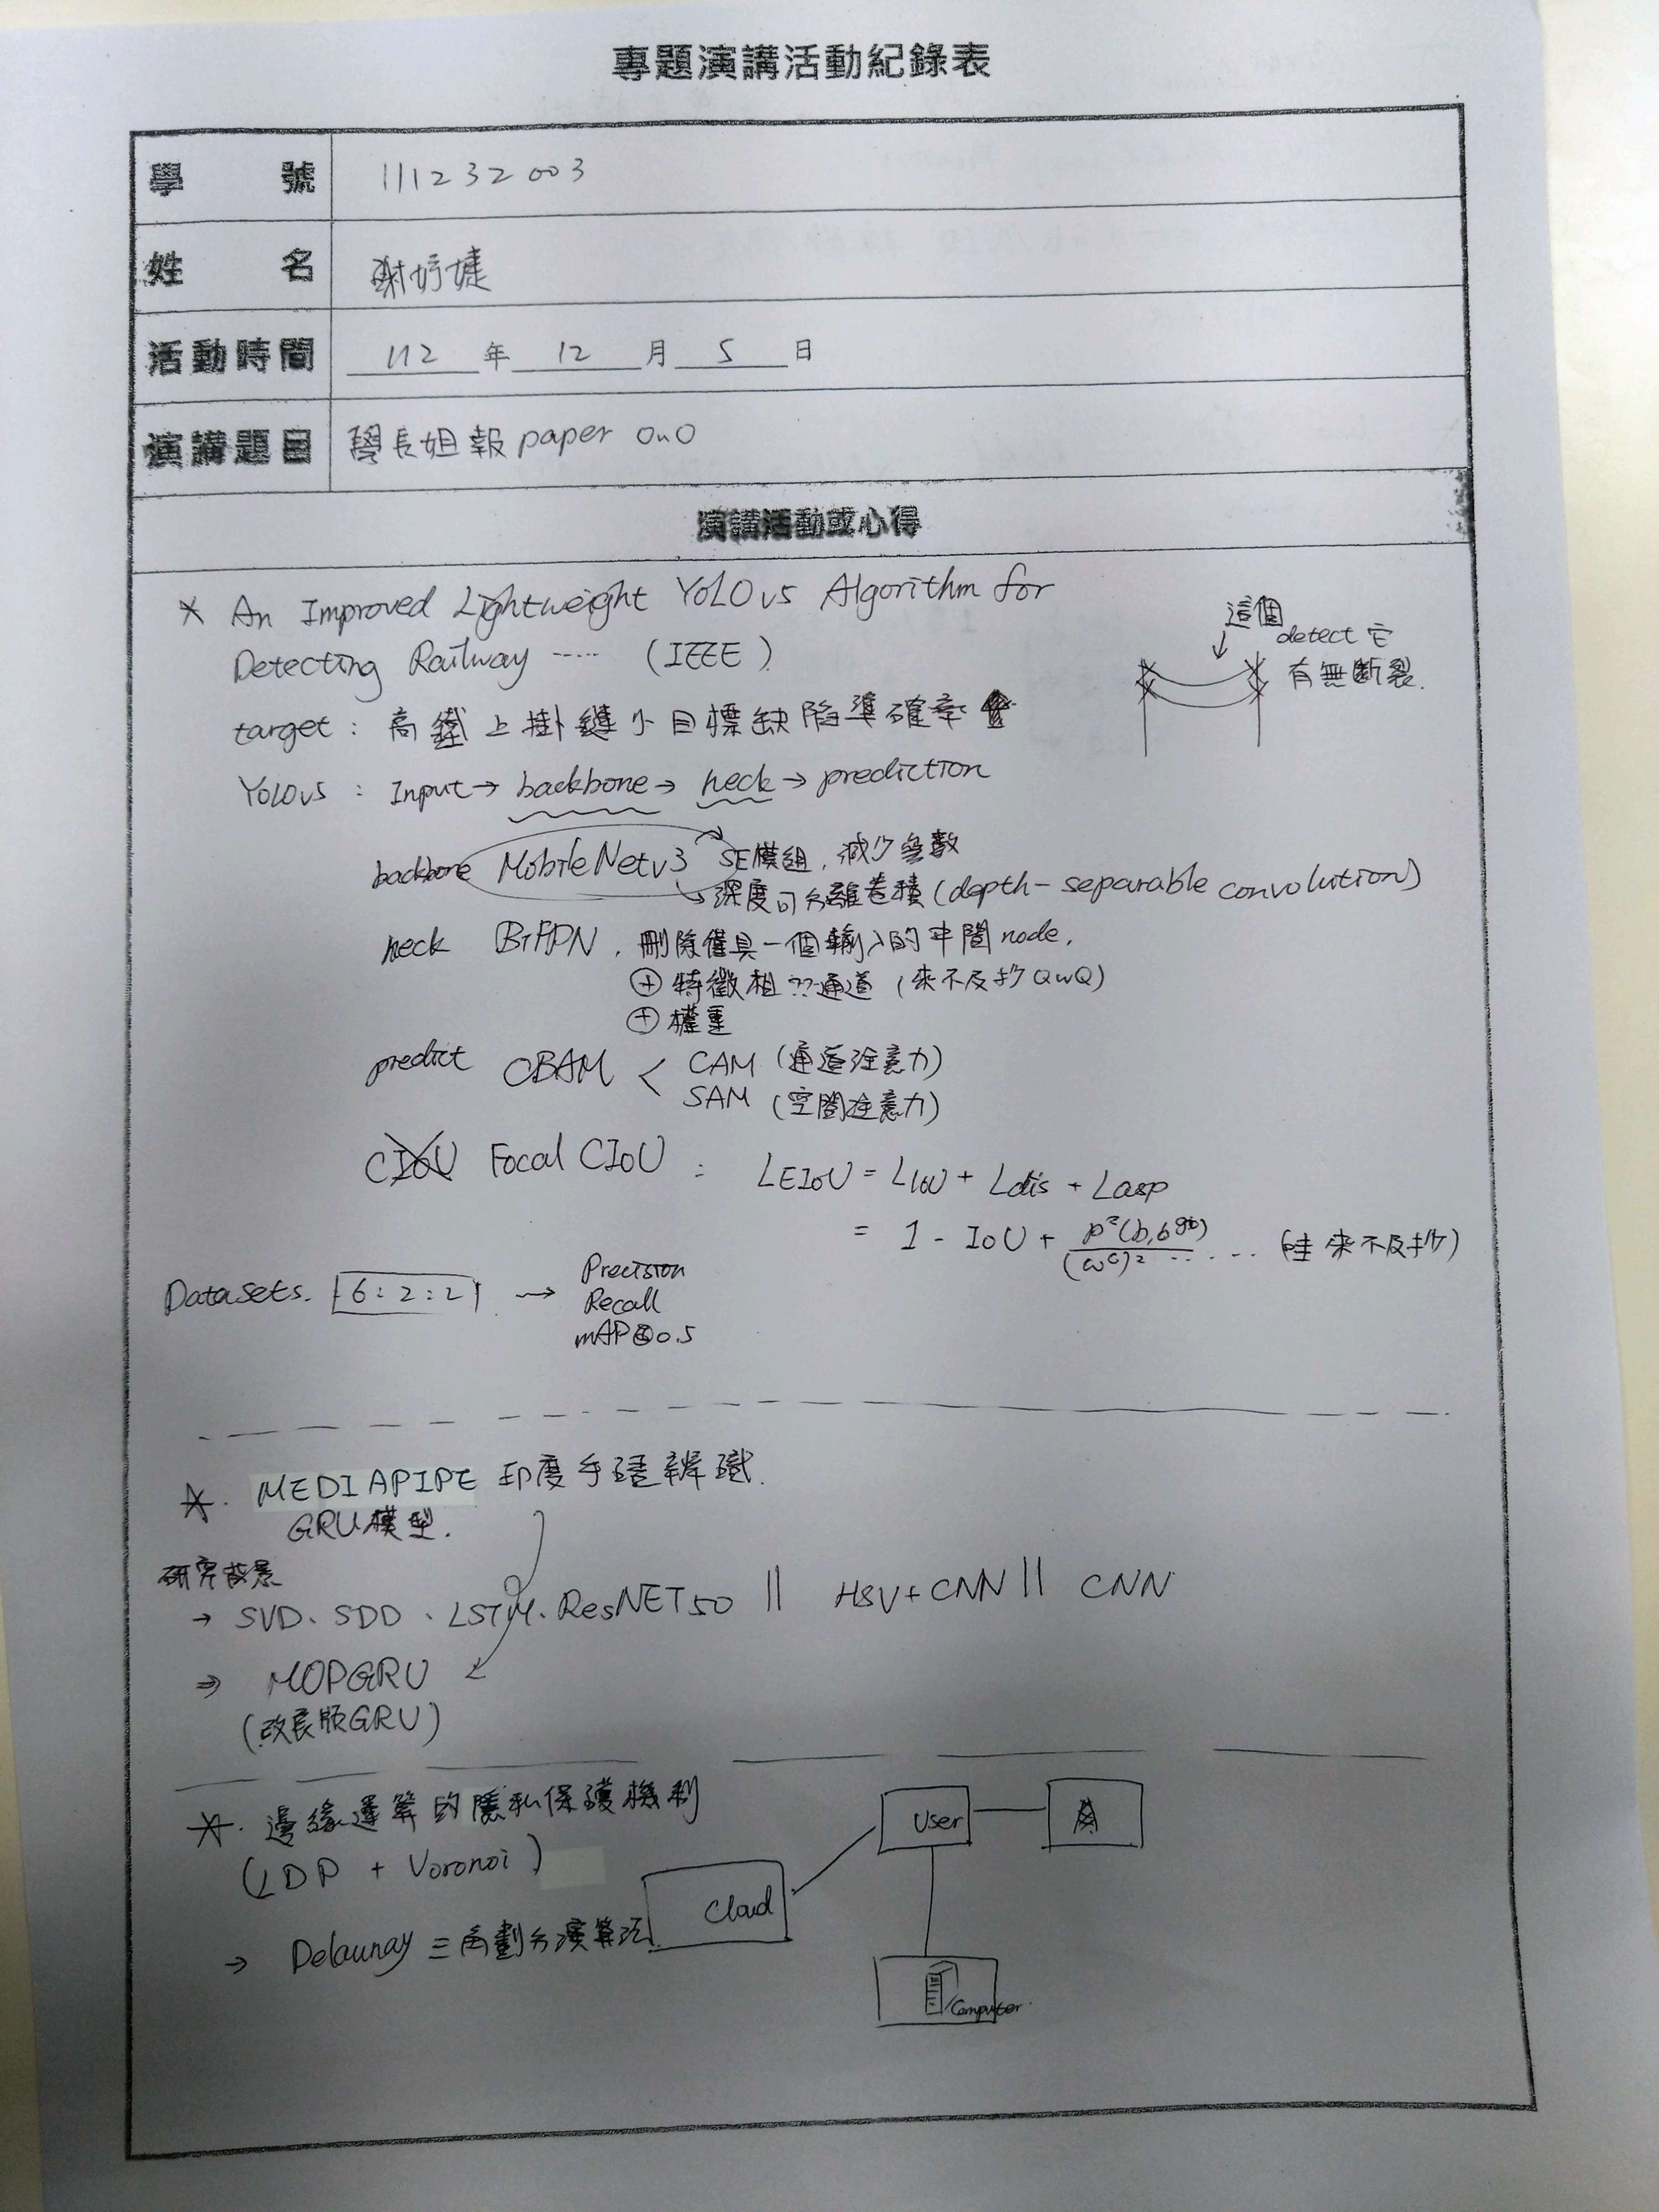 專題演講活動紀錄表
學號 111232003
姓名 謝妤婕
活動時間 112 年 12 月 5 日
演講題目 學長姐報 paper OnO
演講活動或心得
* An Improved Lightweight YOLOv5 Algorithm for
Detecting Railway ····· (IEEE)
這個
detect 它
有無斷裂.
target : 高鐵上掛鏈小目標缺陷準確率
YOLOv5 : Input → backbone → neck → prediction
backbone MobileNetv3 SE模組, 減少參數
深度可分離卷積 (depth-separable convolution)
neck BiFPN, 刪除僅具一個輸入的中間node,
⊕ 特徵相??通道 (來不及抄QwQ)
⊕ 權重
predict CBAM < CAM (通道注意力)
SAM (空間注意力)
CIoU Focal CIoU : LEIoU = LIoU + Ldis + Lasp
= 1 - IoU + ρ²(b,b^gt) / (w^c)² ··· ··· (哇 來不及抄)
Datasets. 6:2:2 → Precision
Recall
mAP@0.5
☆. MEDIAPIPE 印度手語辨識.
GRU模型.
研究背景
→ SVD、SDD、LSTM、ResNET50 || HSV+CNN || CNN
⇒ MOPGRU
(改良版GRU)
☆. 邊緣運算的隱私保護機制
(LDP + Voronoi)
→ Delaunay 三角劃分演算法
User
Cloud
Computer